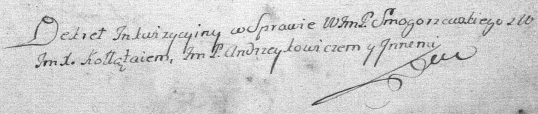 Dekret Inkwizycyiny w Sprawie WJmP. Smogorzewskiego z W
Jm X. Kołłątaiem, Jm P. Andrzeykowiczem y Jnnemi